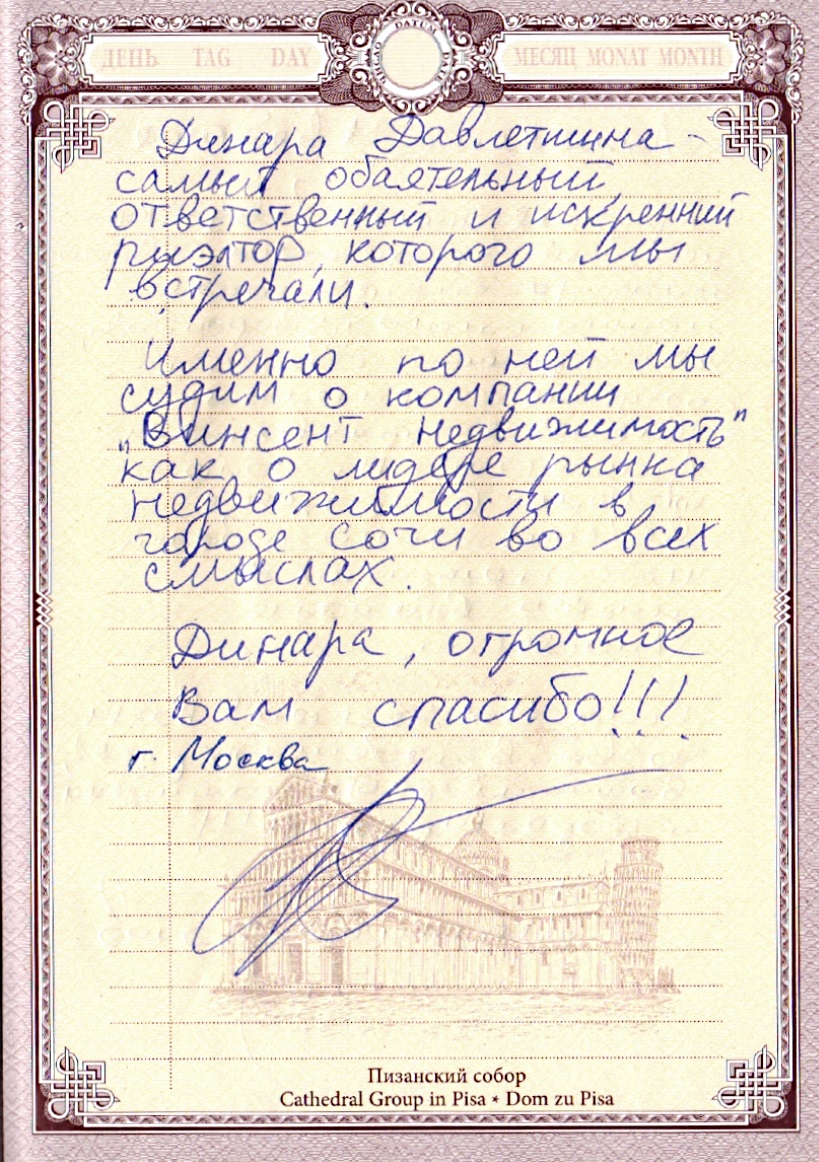 ДЕНЬ TAG DAY
DATUM
МЕСЯЦ MONAT MONTH
Динара Давлетшина -
самый обаятельный,
ответственный и искренний
риэлтор, которого мы
встречали.
Именно по ней мы
судим о компании
"Винсент Недвижимость"
как о лидере рынка
недвижимости в
городе Сочи во всех
смыслах.
Динара, огромное
Вам спасибо!!!
г. Москва
Пизанский собор
Cathedral Group in Pisa * Dom zu Pisa